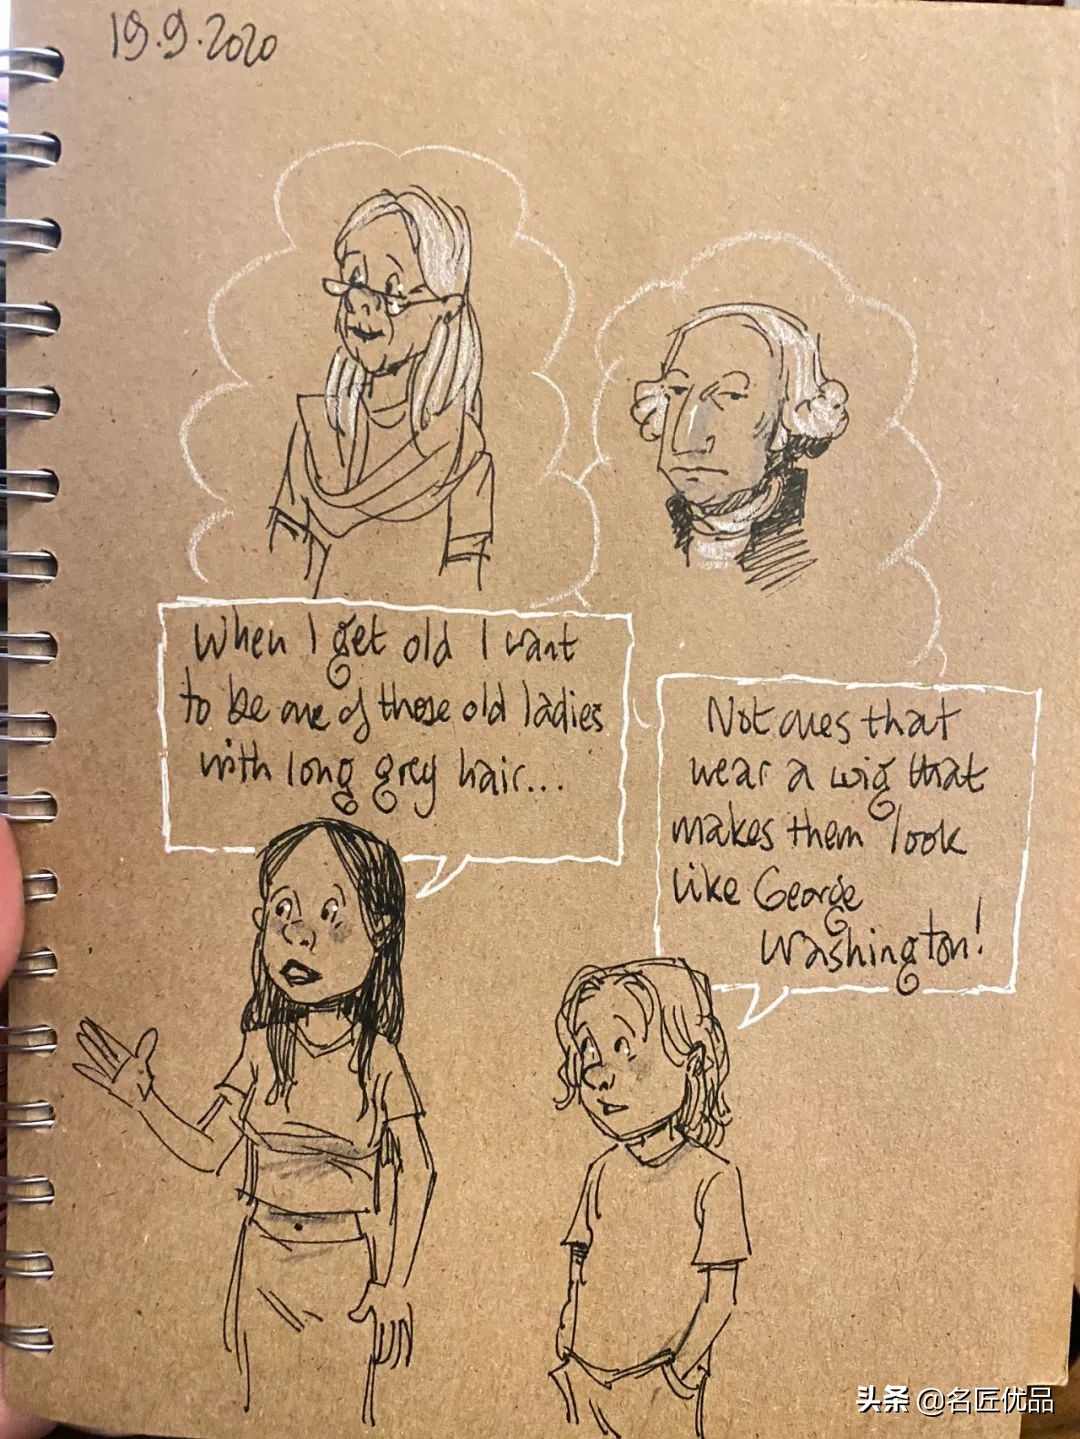 19.9.2020
When I get old I want
to be one of those old ladies
with long grey hair...
Not ones that
wear a wig that
makes them look
like George
Washington!
头条 @名匠优品